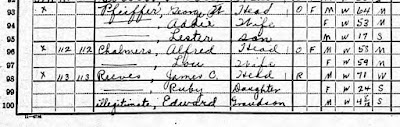 x Pfeiffer, Geo. W. Head O F M W 64 M
94 ——, Addie Wife F W 53 M
95 ——, Lester Son M W 17 S
96 x 112 112 Chalmers, Alfred Head O F M W 53 M
97 ——, Lou Wife F W 59 M
98 x 113 113 Reeves, James C. Head R M W 71 W
99 ——, Ruby Daughter F W 24 S
100 illegitimate, Edward Grandson M W S